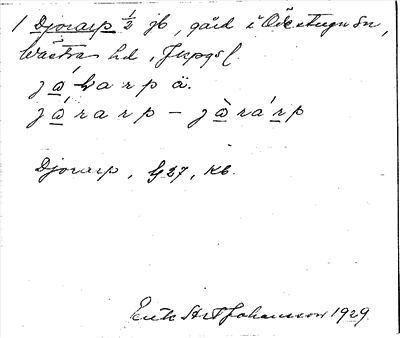 1 Djorarp ½ jb, gård i Ödestugu sn,
Västra hd, Jkpgs l.
jáharp ä.
járarp – jàrárp
Djorarp, G27, KB.
Erik Art Johansson 1929.